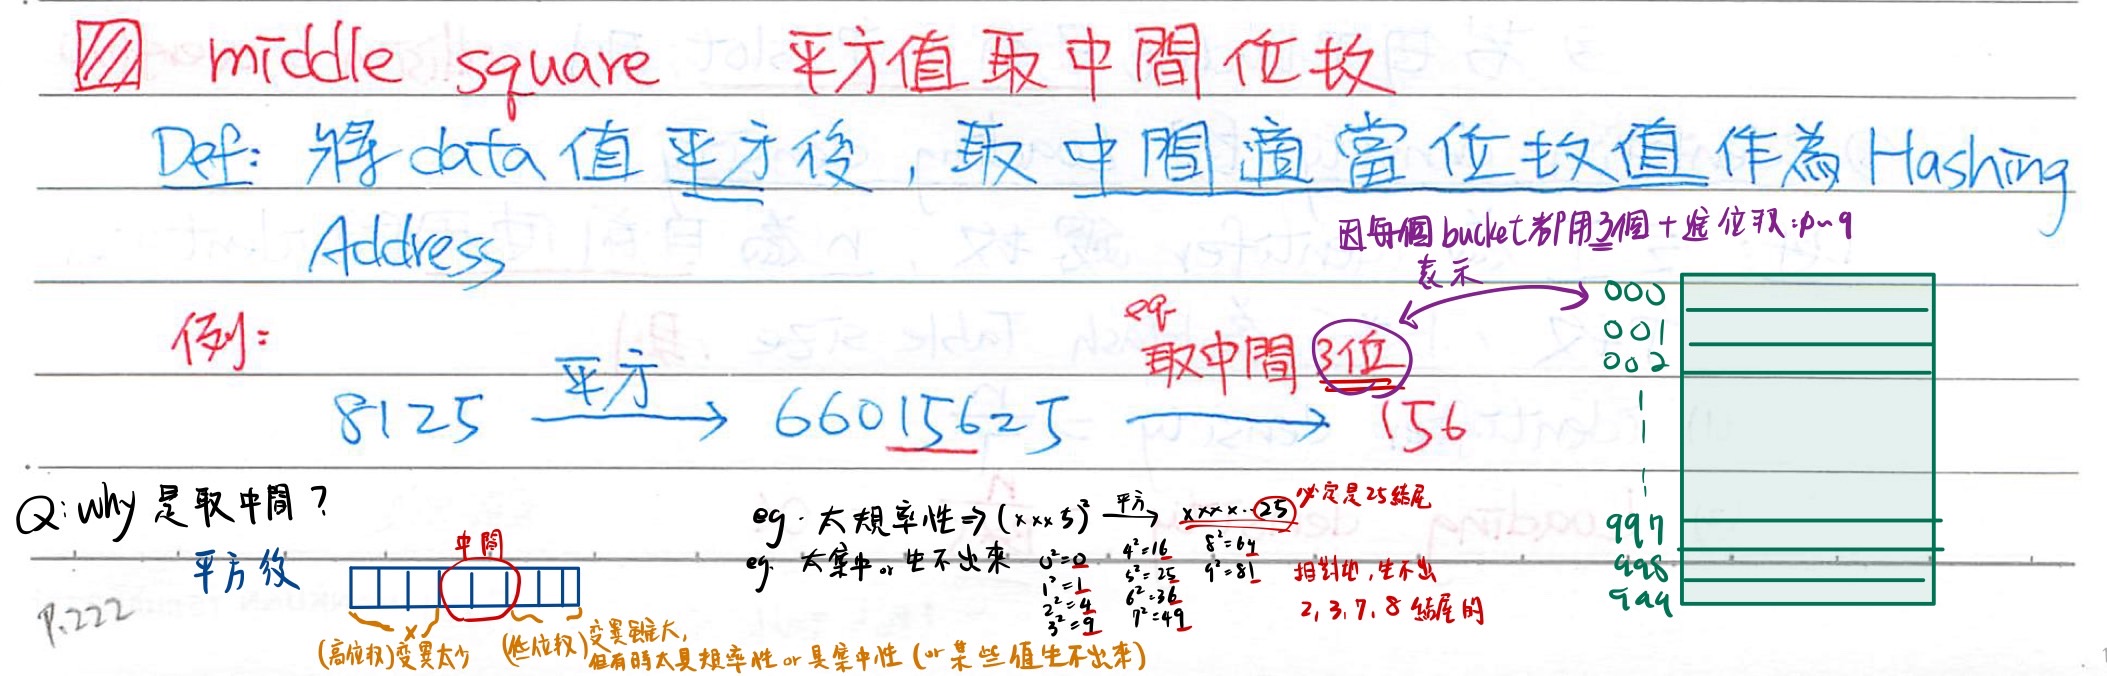 middle square 平方值取中間位數
Def: 將data值平方後,取中間適當位數值作為Hashing
Address
因每個bucket都用3個十進位數:0~9
表示
例:
eg.
取中間3位
8125 平方 66015625 156
000
001
002
997
998
999
Q:why 是取中間?
平方後
中間
(高位數)變異太少
(低位數)變異雖大,
但有時太具規率性 or 具集中性 (or 某些值生不出來)
eg. 太規率性⇒(xxx5)² 平方 xxxx..25 必定是25結尾
eg. 太集中 or 生不出來
0²=0
1²=1
2²=4
3²=9
4²=16
5²=25
6²=36
7²=49
8²=64
9²=81
相對地,生不出
2,3,7,8 結尾的
P.222